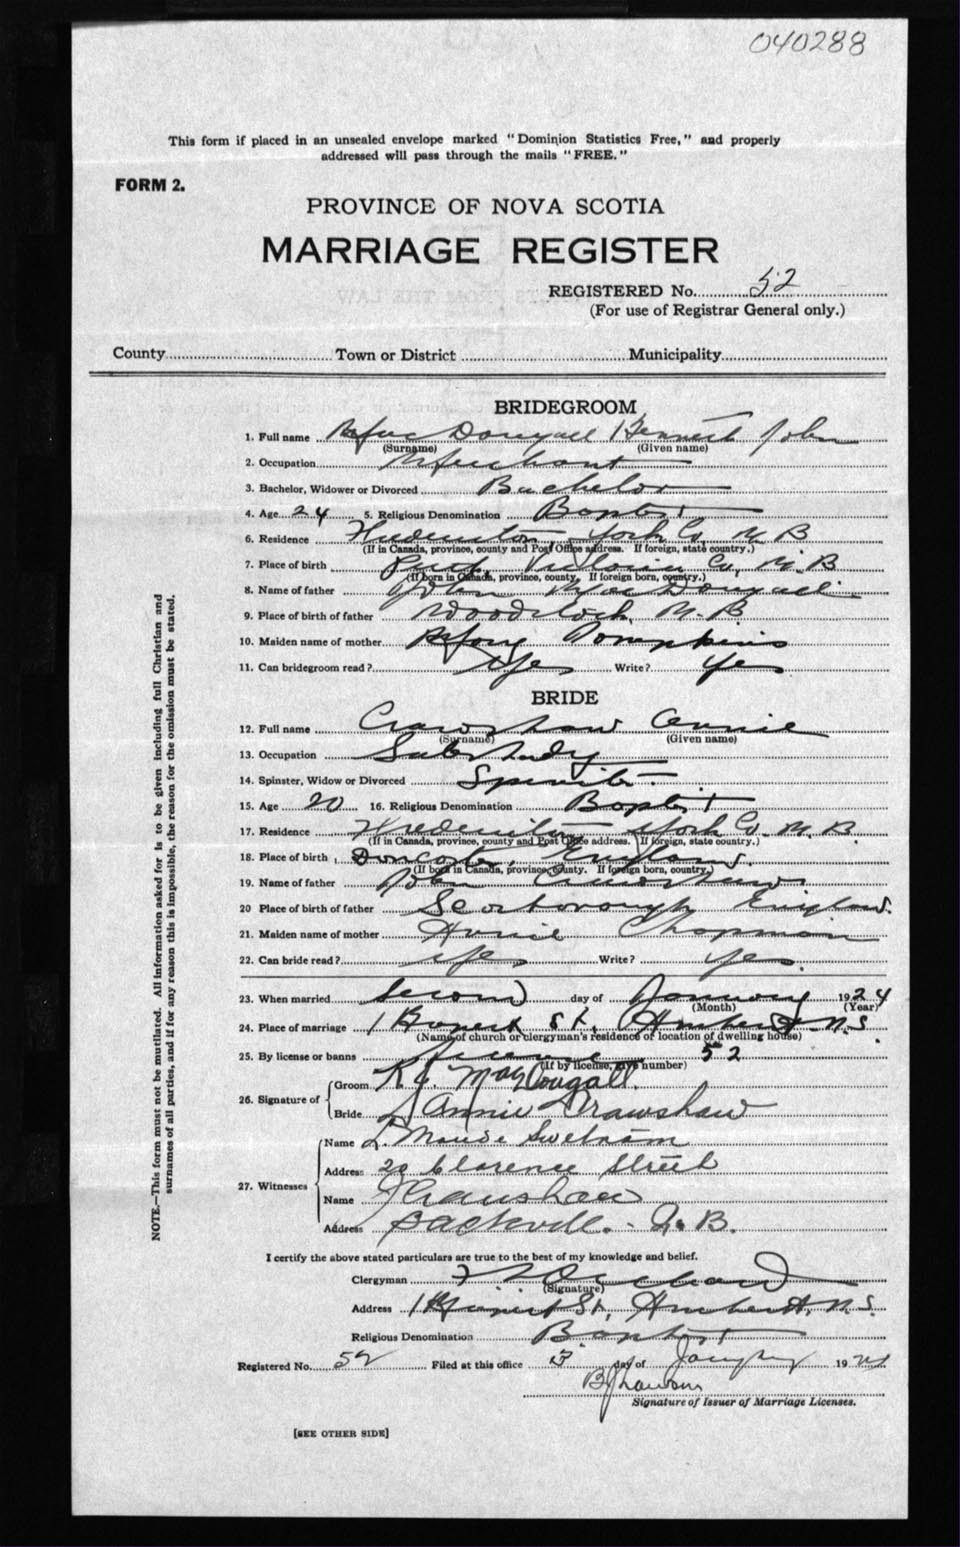 040288
This form if placed in an unsealed envelope marked "Dominion Statistics Free," and properly
addressed will pass through the mails "FREE."
FORM 2.
PROVINCE OF NOVA SCOTIA
MARRIAGE REGISTER
REGISTERED No. 52
(For use of Registrar General only.)
County Town or District Municipality
BRIDEGROOM
1. Full name MacDougall Kenneth John
(Surname) (Given name)
2. Occupation Merchant
3. Bachelor, Widower or Divorced Bachelor
4. Age 24 5. Religious Denomination Baptist
6. Residence Fredericton, York Co, N B
(If in Canada, province, county and Post Office address. If foreign, state country.)
7. Place of birth Perth Victoria Co, N. B
(If born in Canada, province, county. If foreign born, country.)
8. Name of father John MacDougall
9. Place of birth of father Woodstock, N. B
10. Maiden name of mother Tompkins
11. Can bridegroom read? Yes Write? Yes
BRIDE
12. Full name Crawshaw Annie
(Surname) (Given name)
13. Occupation Sales Lady
14. Spinster, Widow or Divorced Spinster
15. Age 20 16. Religious Denomination Baptist
17. Residence Fredericton York Co. N. B
(If in Canada, province, county and Post Office address. If foreign, state country.)
18. Place of birth Doncaster, England
(If born in Canada, province, county. If foreign born, country.)
19. Name of father John Crawshaw
20 Place of birth of father Scarborough England.
21. Maiden name of mother Annie Chapman
22. Can bride read? Yes Write? Yes.
23. When married Second day of January 1924
(Month) (Year)
24. Place of marriage 1 Rupert St, Amherst. N.S.
(Name of church or clergyman's residence or location of dwelling house)
25. By license or banns license 52
(If by license, give number)
26. Signature of Groom K J. MacDougall.
Bride Annie Crawshaw
27. Witnesses Name L. Maude Swetnam
Address 20 Clarence Street
Name J Crawshaw
Address Sackville. - N. B.
I certify the above stated particulars are true to the best of my knowledge and belief.
Clergyman Orchard
(Signature)
Address 1 Rupert St, Amherst, N.S.
Religious Denomination Baptist
Registered No. 52 Filed at this office 3 day of January 1924
Signature of Issuer of Marriage Licenses.
[SEE OTHER SIDE]
NOTE.—This form must not be mutilated. All information asked for is to be given including full Christian and
surnames of all parties, and if for any reason this is impossible, the reason for the omission must be stated.